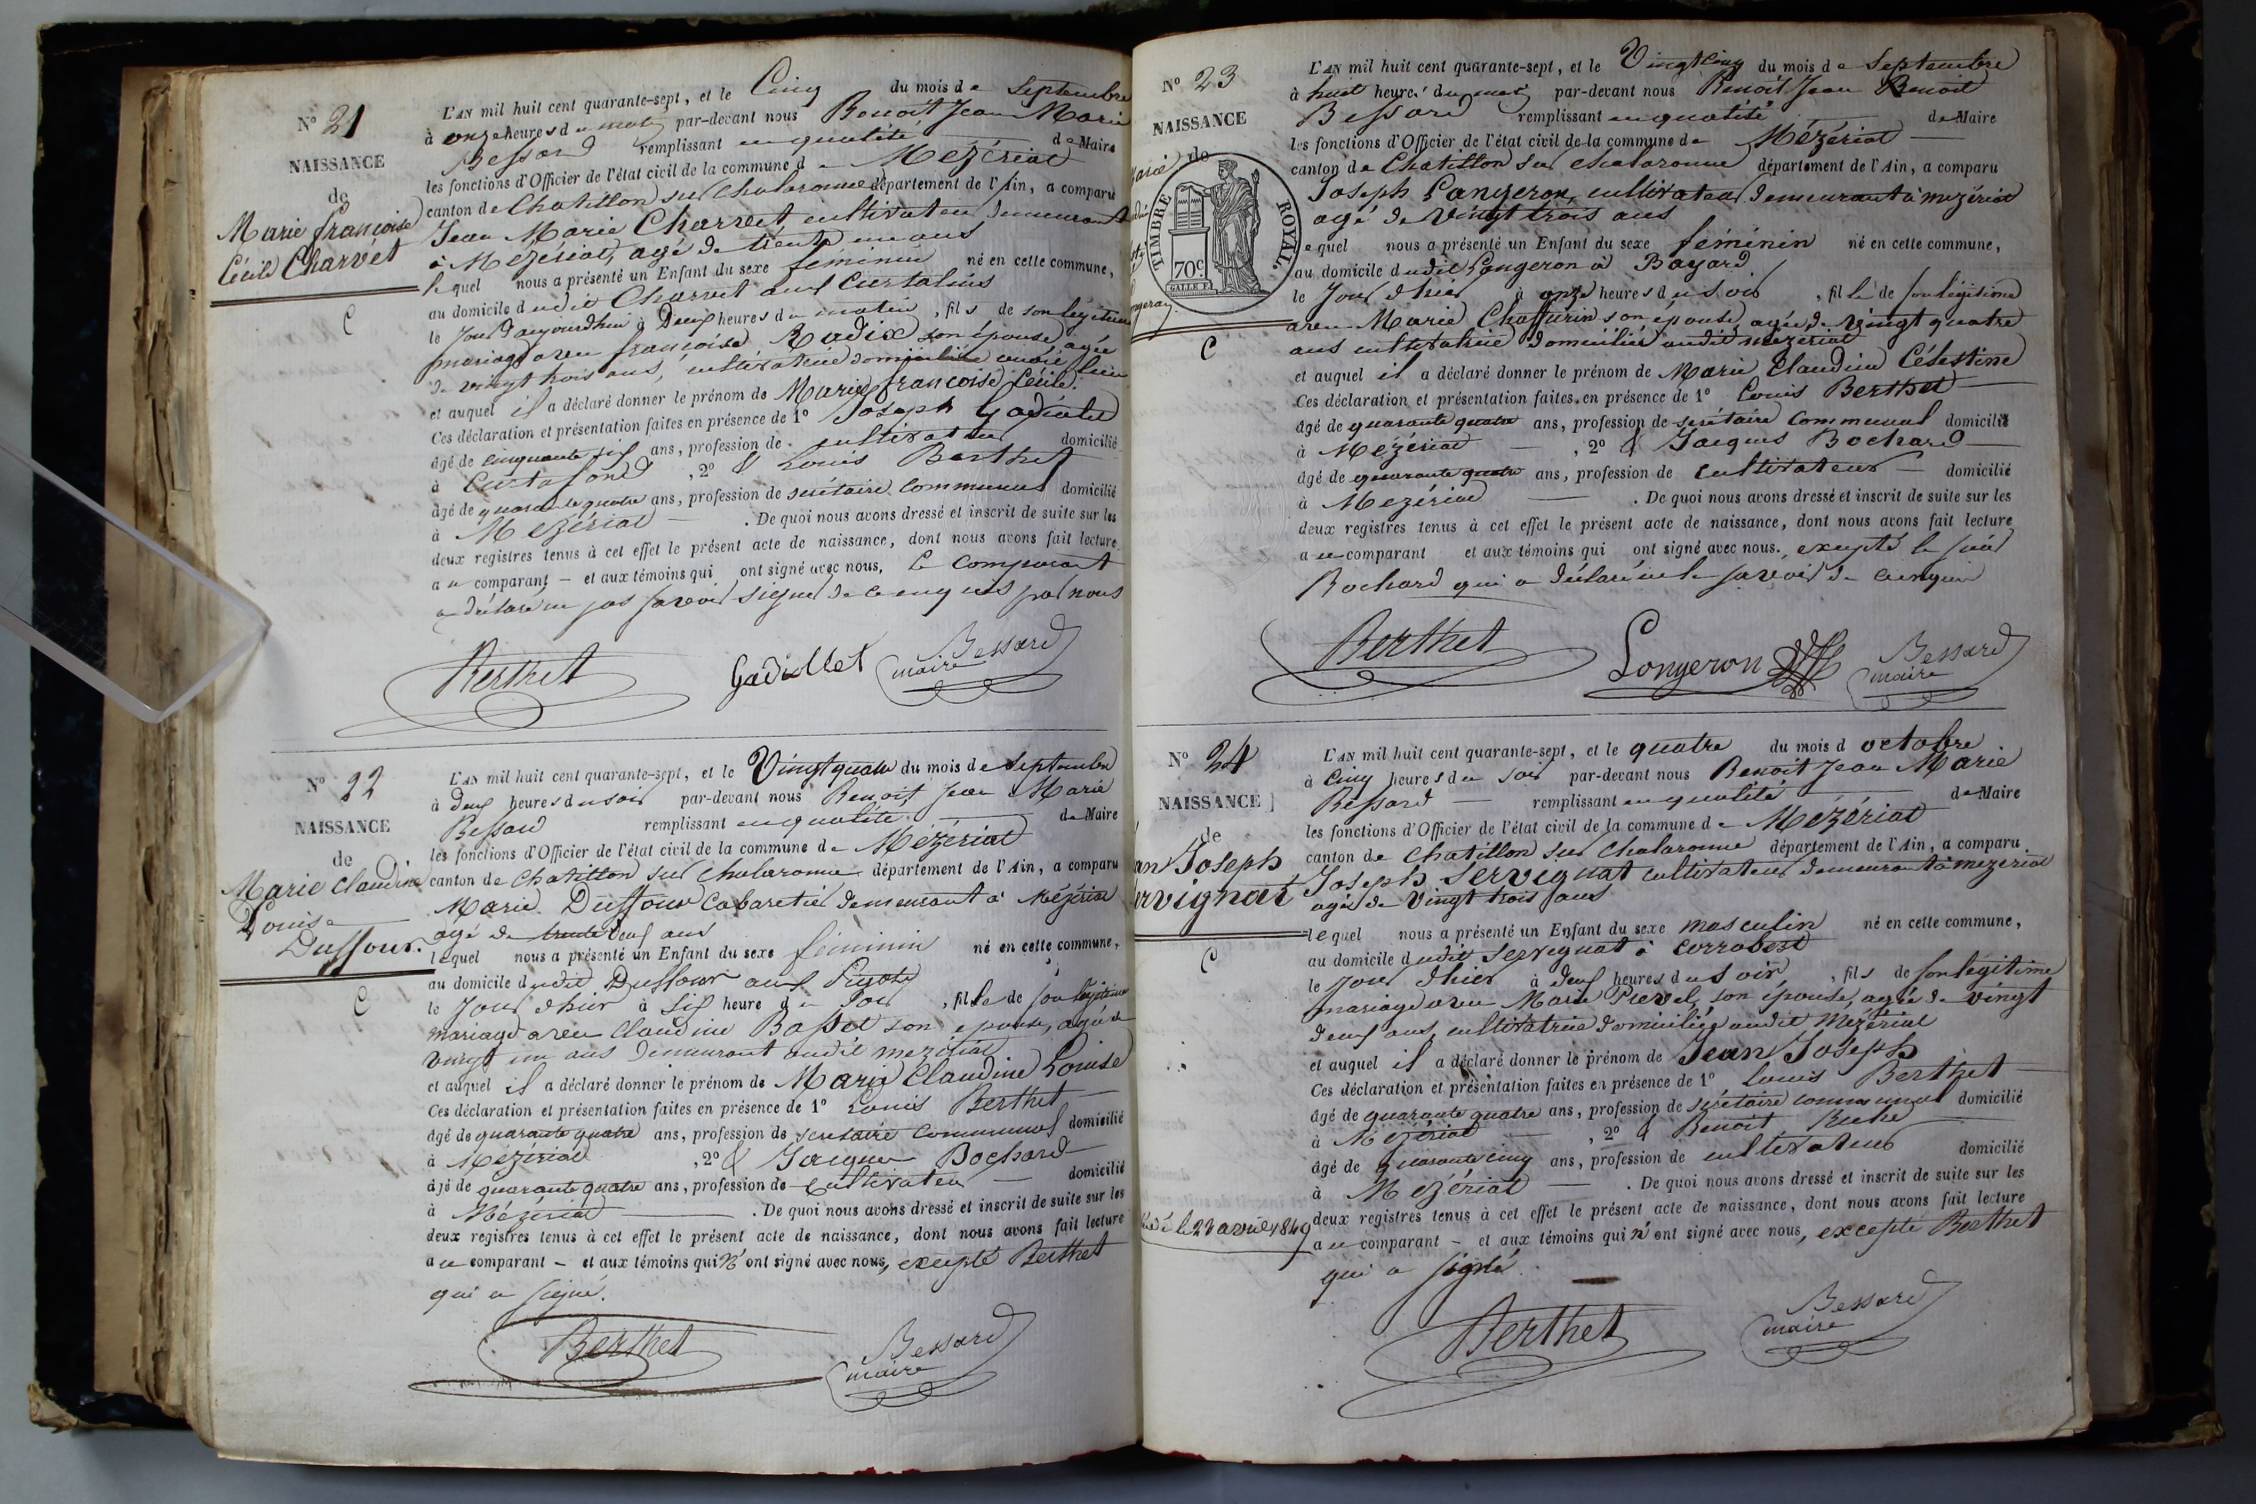 N° 21
NAISSANCE
de
Marie françoise
Cécile Charvét
C
L'AN mil huit cent quarante-sept, et le Cinq du mois de Septembre
à onze heures du matin par-devant nous Benoit Jean Marie
Bessard remplissant en qualité de Maire
les fonctions d'Officier de l'état civil de la commune de Mézériat
canton de Chatillon sur Chalaronne département de l'Ain, a comparu
Jean Marie Charvet cultivateur demeurant
à Mézériat, agé de trente un ans
lequel nous a présenté un Enfant du sexe féminin né en cette commune,
au domicile dudit Charvet aux Curtalins
le Jour d'aujourdhui à Deux heures du matin, fils de son légitime
mariage avec françoise Radix son épouse agée
de vingt trois ans, cultivatrice domiciliée audit lieu
et auquel il a déclaré donner le prénom de Marie françoise Cécile.
Ces déclaration et présentation faites en présence de 1° Joseph Gadiolet
âgé de cinquante six ans, profession de cultivateur domicilié
à Curtafond, 2° & Louis Berthet
âgé de quarante quatre ans, profession de secrétaire communal domicilié
à Mézériat. De quoi nous avons dressé et inscrit de suite sur les
deux registres tenus à cet effet le présent acte de naissance, dont nous avons fait lecture
au comparant – et aux témoins qui ont signé avec nous, le comparant
a déclaré ne pas savoir signer de ce enquis par nous
Berthet Gadiollet Bessard
maire
N° 22
NAISSANCE
de
Marie Claudine
Louise
Duffour.
C
L'AN mil huit cent quarante-sept, et le Vingt quatre du mois de Septembre
à Deux heures du soir par-devant nous Benoit Jean Marie
Bessard remplissant en qualité de Maire
les fonctions d'Officier de l'état civil de la commune de Mézériat
canton de Chatillon sur Chalaronne département de l'Ain, a comparu
Marie Duffour Cabaretier demeurant à Mézériat
agé de trente neuf ans
lequel nous a présenté un Enfant du sexe féminin né en cette commune,
au domicile dudit Duffour aux
le Jour d'hier à Six heure du Soir, fille de son légitime
mariage avec Claudine Basset son épouse, agée de
vingt un ans demeurant audit mezériat
et auquel il a déclaré donner le prénom de Marie Claudine Louise
Ces déclaration et présentation faites en présence de 1° Louis Berthet
âgé de quarante quatre ans, profession de secrétaire communal domicilié
à Mézériat, 2° & Jacques Bochard
âgé de quarante quatre ans, profession de Cultivateur domicilié
à Mézériat. De quoi nous avons dressé et inscrit de suite sur les
deux registres tenus à cet effet le présent acte de naissance, dont nous avons fait lecture
au comparant – et aux témoins qui n'ont signé avec nous, excepté Berthet
qui a signé.
Berthet Bessard
maire
N° 23
NAISSANCE
de
TIMBRE ROYAL.
70c
C
L'AN mil huit cent quarante-sept, et le Vingt Cinq du mois de Septembre
à huit heures du matin par-devant nous Benoit Jean Benoit
Bessard remplissant en qualité de Maire
les fonctions d'Officier de l'état civil de la commune de Mézériat
canton de Chatillon sur Chalaronne département de l'Ain, a comparu
Joseph Longeron, cultivateur demeurant à mezériat
agé de Vingt trois ans
lequel nous a présenté un Enfant du sexe féminin né en cette commune,
au domicile dudit Longeron à Bayard
le Jour d'hier à onze heures du soir, fille de son légitime
avec Marie Chaffurin son épouse, agée de vingt quatre
ans cultivatrice domiciliée audit mezériat
et auquel il a déclaré donner le prénom de Marie Claudine Célestine
Ces déclaration et présentation faites en présence de 1° Louis Berthet
âgé de quarante quatre ans, profession de secrétaire communal domicilié
à Mézériat, 2° & Jacques Bochard
âgé de quarante quatre ans, profession de cultivateur domicilié
à Mezériat. De quoi nous avons dressé et inscrit de suite sur les
deux registres tenus à cet effet le présent acte de naissance, dont nous avons fait lecture
au comparant et aux témoins qui ont signé avec nous., excepté le
Bochard qui a déclaré ne le savoir de ce enquis
Berthet Longeron Bessard
maire
N° 24
NAISSANCE
de
an Joseph
rvignat
C
L'AN mil huit cent quarante-sept, et le quatre du mois d octobre
à Cinq heures du soir par-devant nous Benoit Jean Marie
Bessard remplissant en qualité de Maire
les fonctions d'Officier de l'état civil de la commune de Mézériat
canton de Chatillon sur Chalaronne département de l'Ain, a comparu
Joseph Servignat cultivateur demeurant à mezeriat
agé de Vingt trois ans
lequel nous a présenté un Enfant du sexe masculin né en cette commune,
au domicile dudit Servignat à Corrobert
le Jour d'hier à Deux heures du soir, fils de son légitime
mariage avec Marie son épouse, agée de vingt
deux ans, cultivatrice domiciliée audit Mézériat
et auquel il a déclaré donner le prénom de Jean Joseph
Ces déclaration et présentation faites en présence de 1° Louis Berthet
âgé de quarante quatre ans, profession de secrétaire communal domicilié
à Mézériat, 2° & Benoit
âgé de quarante cinq ans, profession de cultivateur domicilié
à Mézériat. De quoi nous avons dressé et inscrit de suite sur les
deux registres tenus à cet effet le présent acte de naissance, dont nous avons fait lecture
au comparant – et aux témoins qui n'ont signé avec nous, excepté Berthet
qui a signé.
le 27 avril 1849
Berthet Bessard
maire